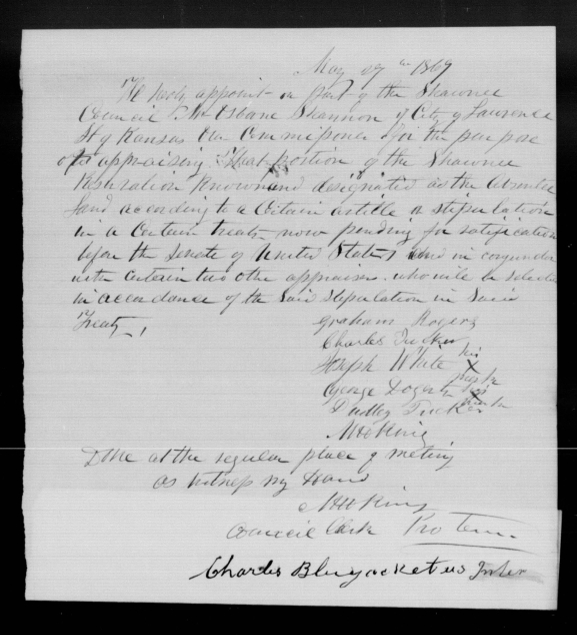 May 07th 1869
We hereby appoint on part of the Shawnee
Council Mr Osbane Shannon of City of Lawrence
St of Kansas Our Commissioner for the purpose
of appraising that portion of the Shawnee
Reservation Known and designated as the Absentee
land according to a Certain article or stipulation
in a Certain treaty now pending for ratification
before the Senate of United States and in conjunction
with certain two other appraisers who will be selected
in accordance of the Said Stipulation in Said
Treaty,
Graham Rogers
Charles Tucker
Joseph White his X mark
George Dogerty his X mark
Dudley Tucker
M H King
Done at the regular place of meeting
as witness my Hand
M H King
Council Clerk Pro tem.
Charles Bluejacket us Inter